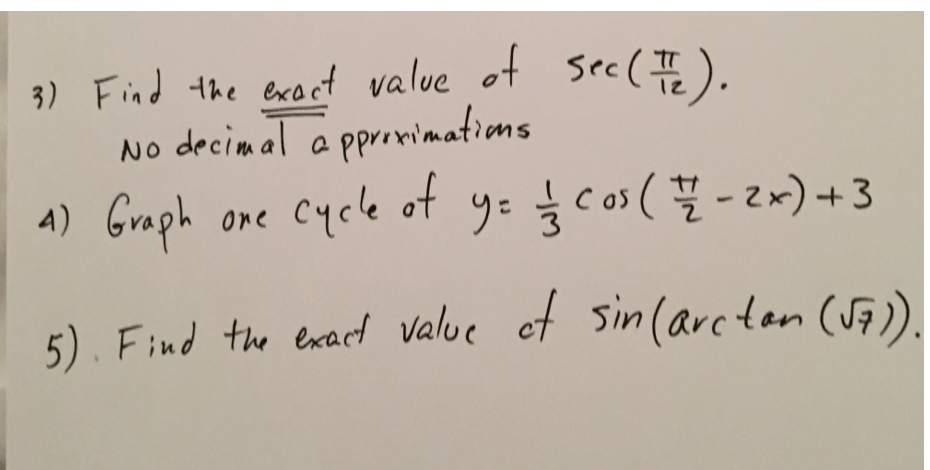 3) Find the exact value of sec(π/12).
No decimal approximations
4) Graph one cycle of y = 1/3 cos(π/2 - 2x) + 3
5). Find the exact value of sin(arctan(√7)).